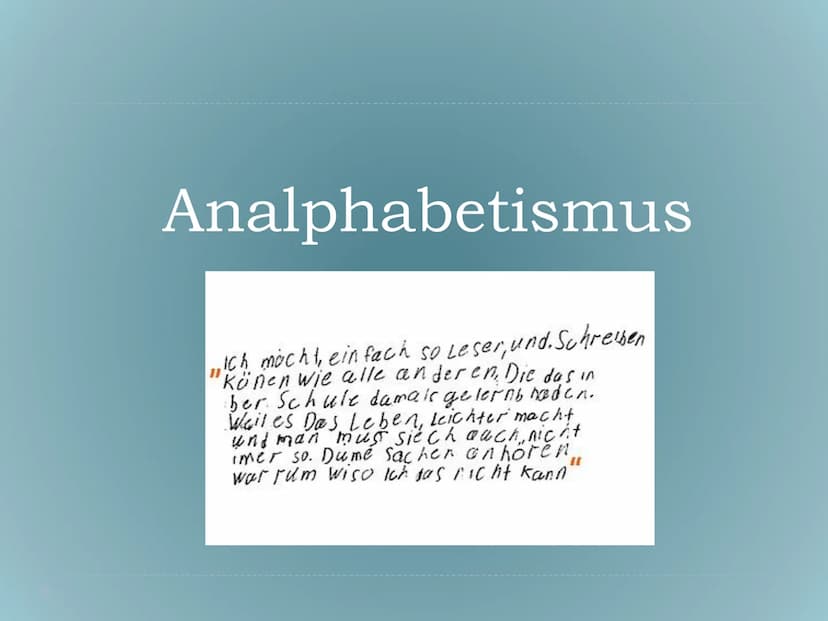 Analphabetismus
"Ich möcht, einfach so Leser, und. Schreiben
Könen wie alle anderen, Die das in
ber Schule damals gelernb haden.
Weil es Das Leben, Leichter macht
und man muss siech auch, nicht
imer so. Dume Sachen anhören
warrum wiso Ich das nicht kann"